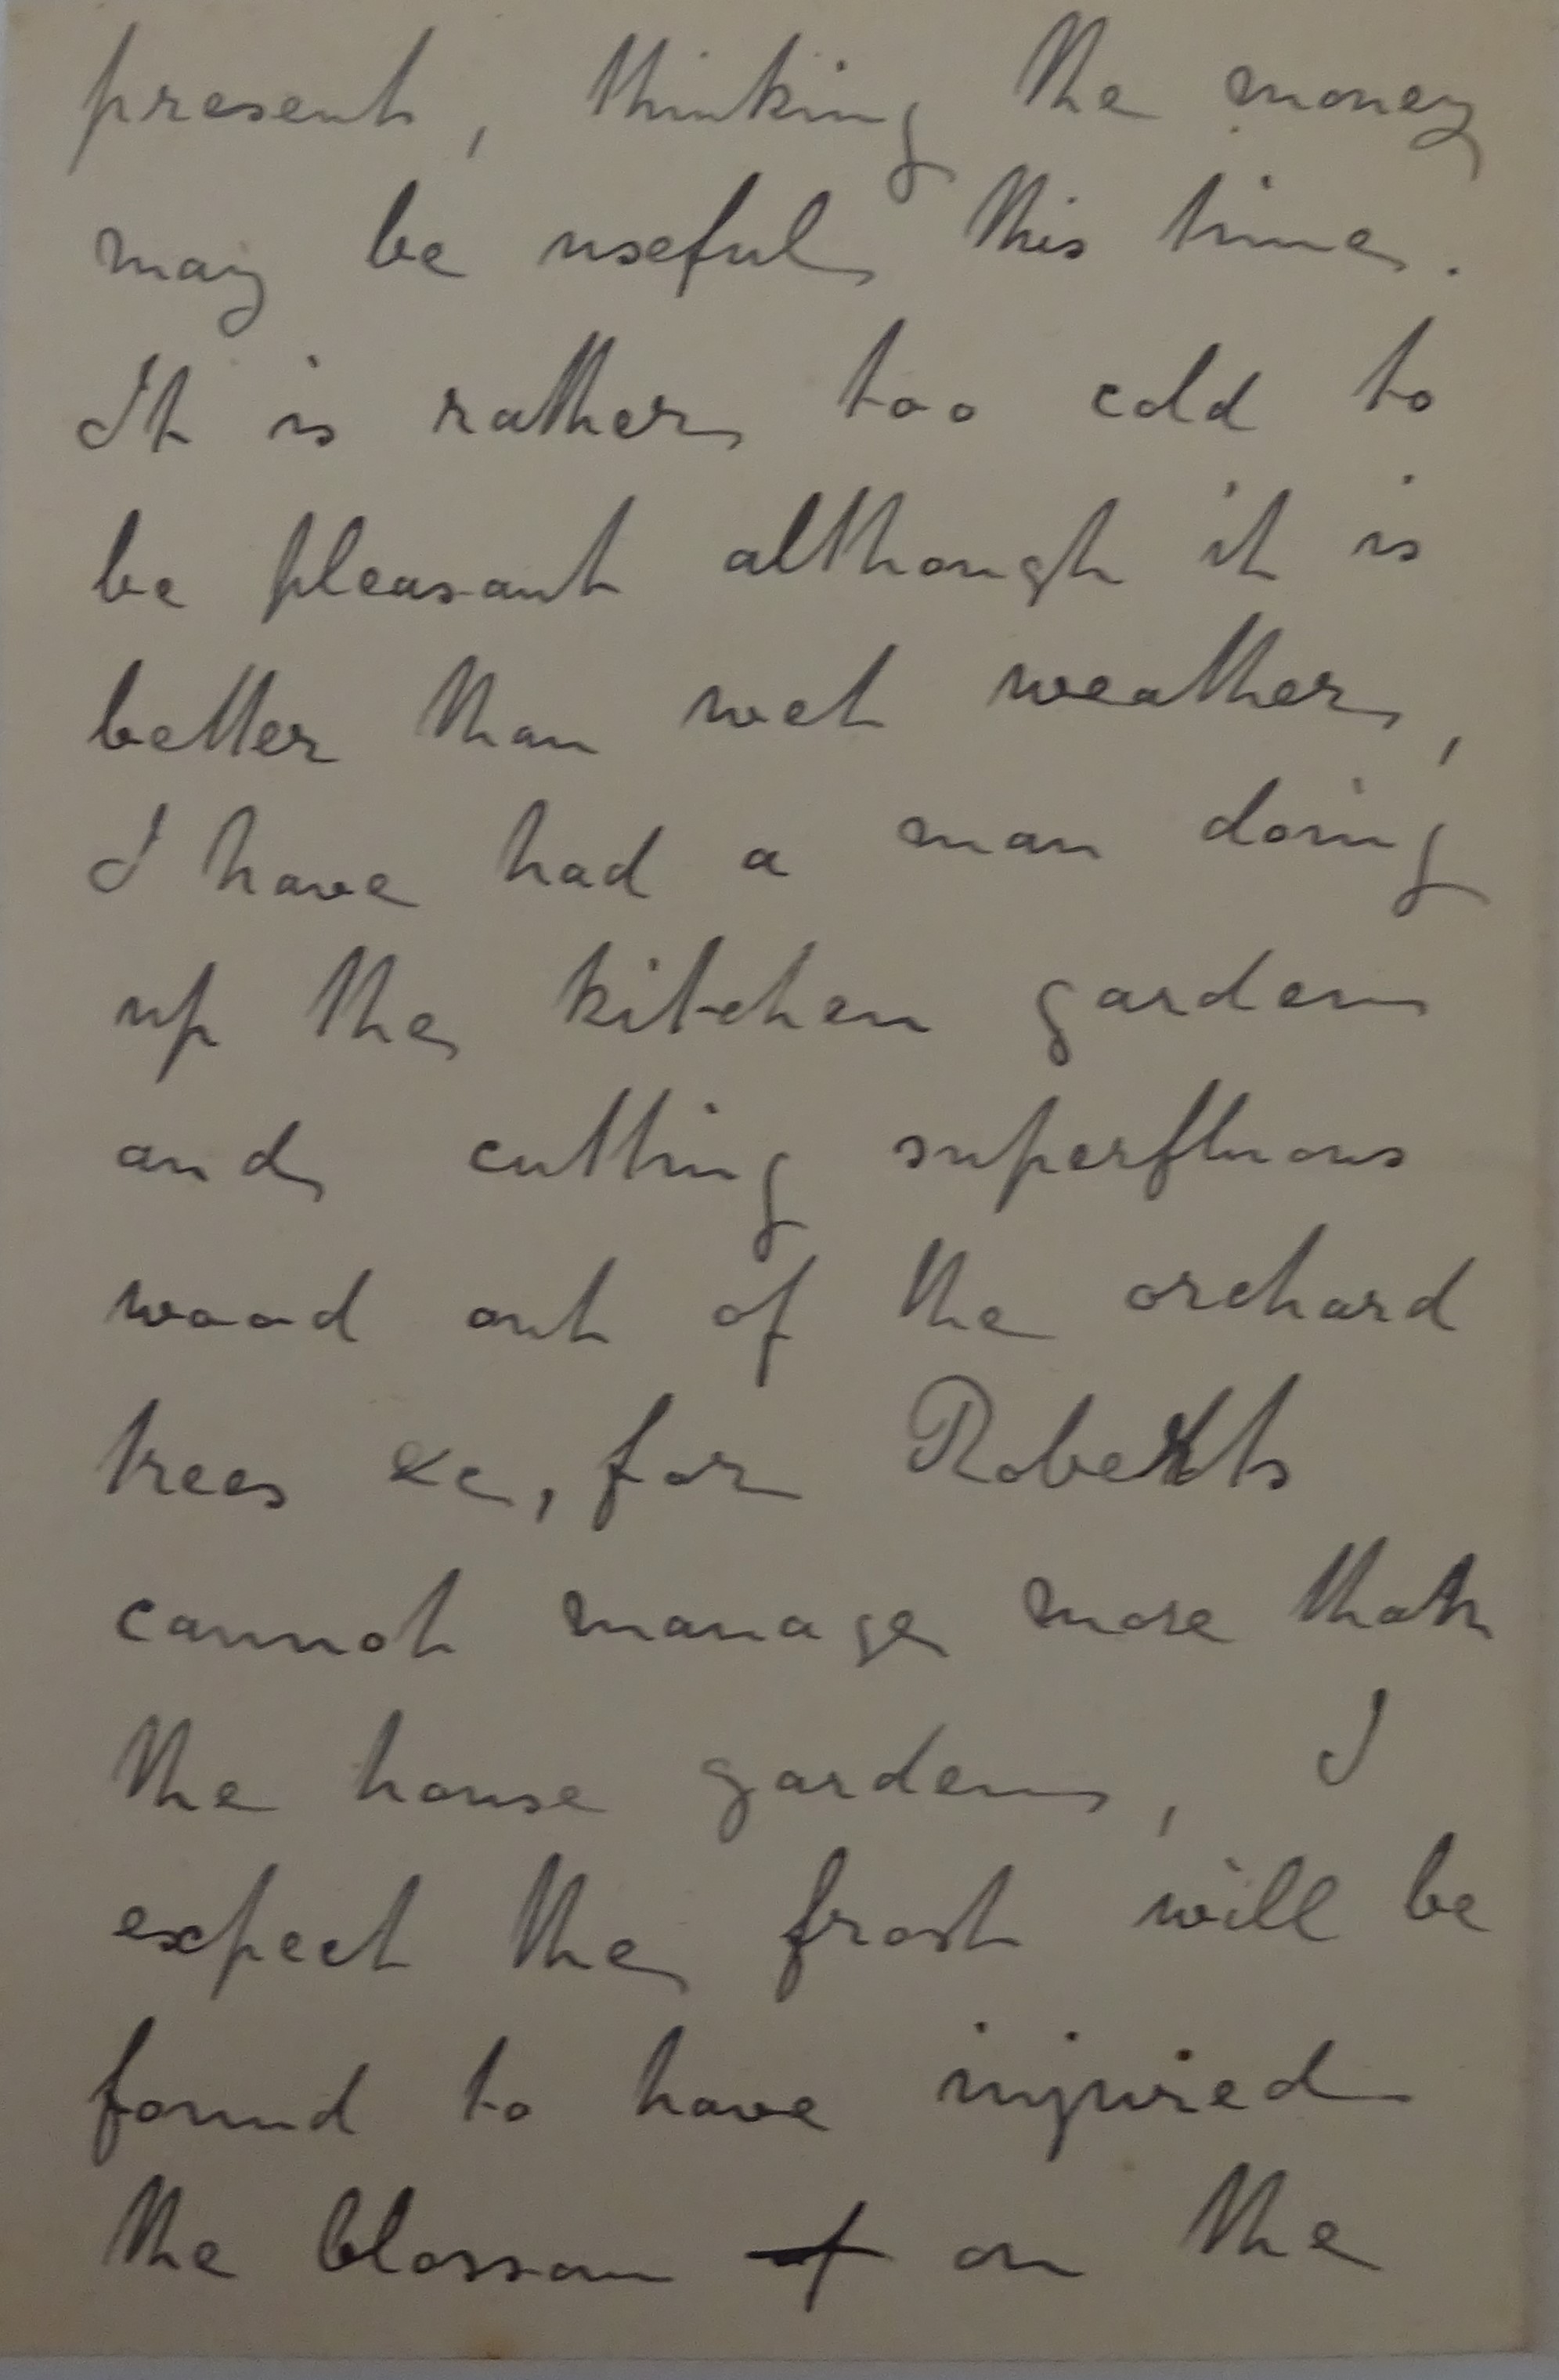 present, thinking the money
may be useful this time.
It is rather too cold to
be pleasant although it is
better than wet weather,
I have had a man doing
up the kitchen garden
and cutting superfluous
wood out of the orchard
trees &c, for Roberts
cannot manage more than
the house garden, I
expect the frost will be
found to have injuried
the blossom of on the